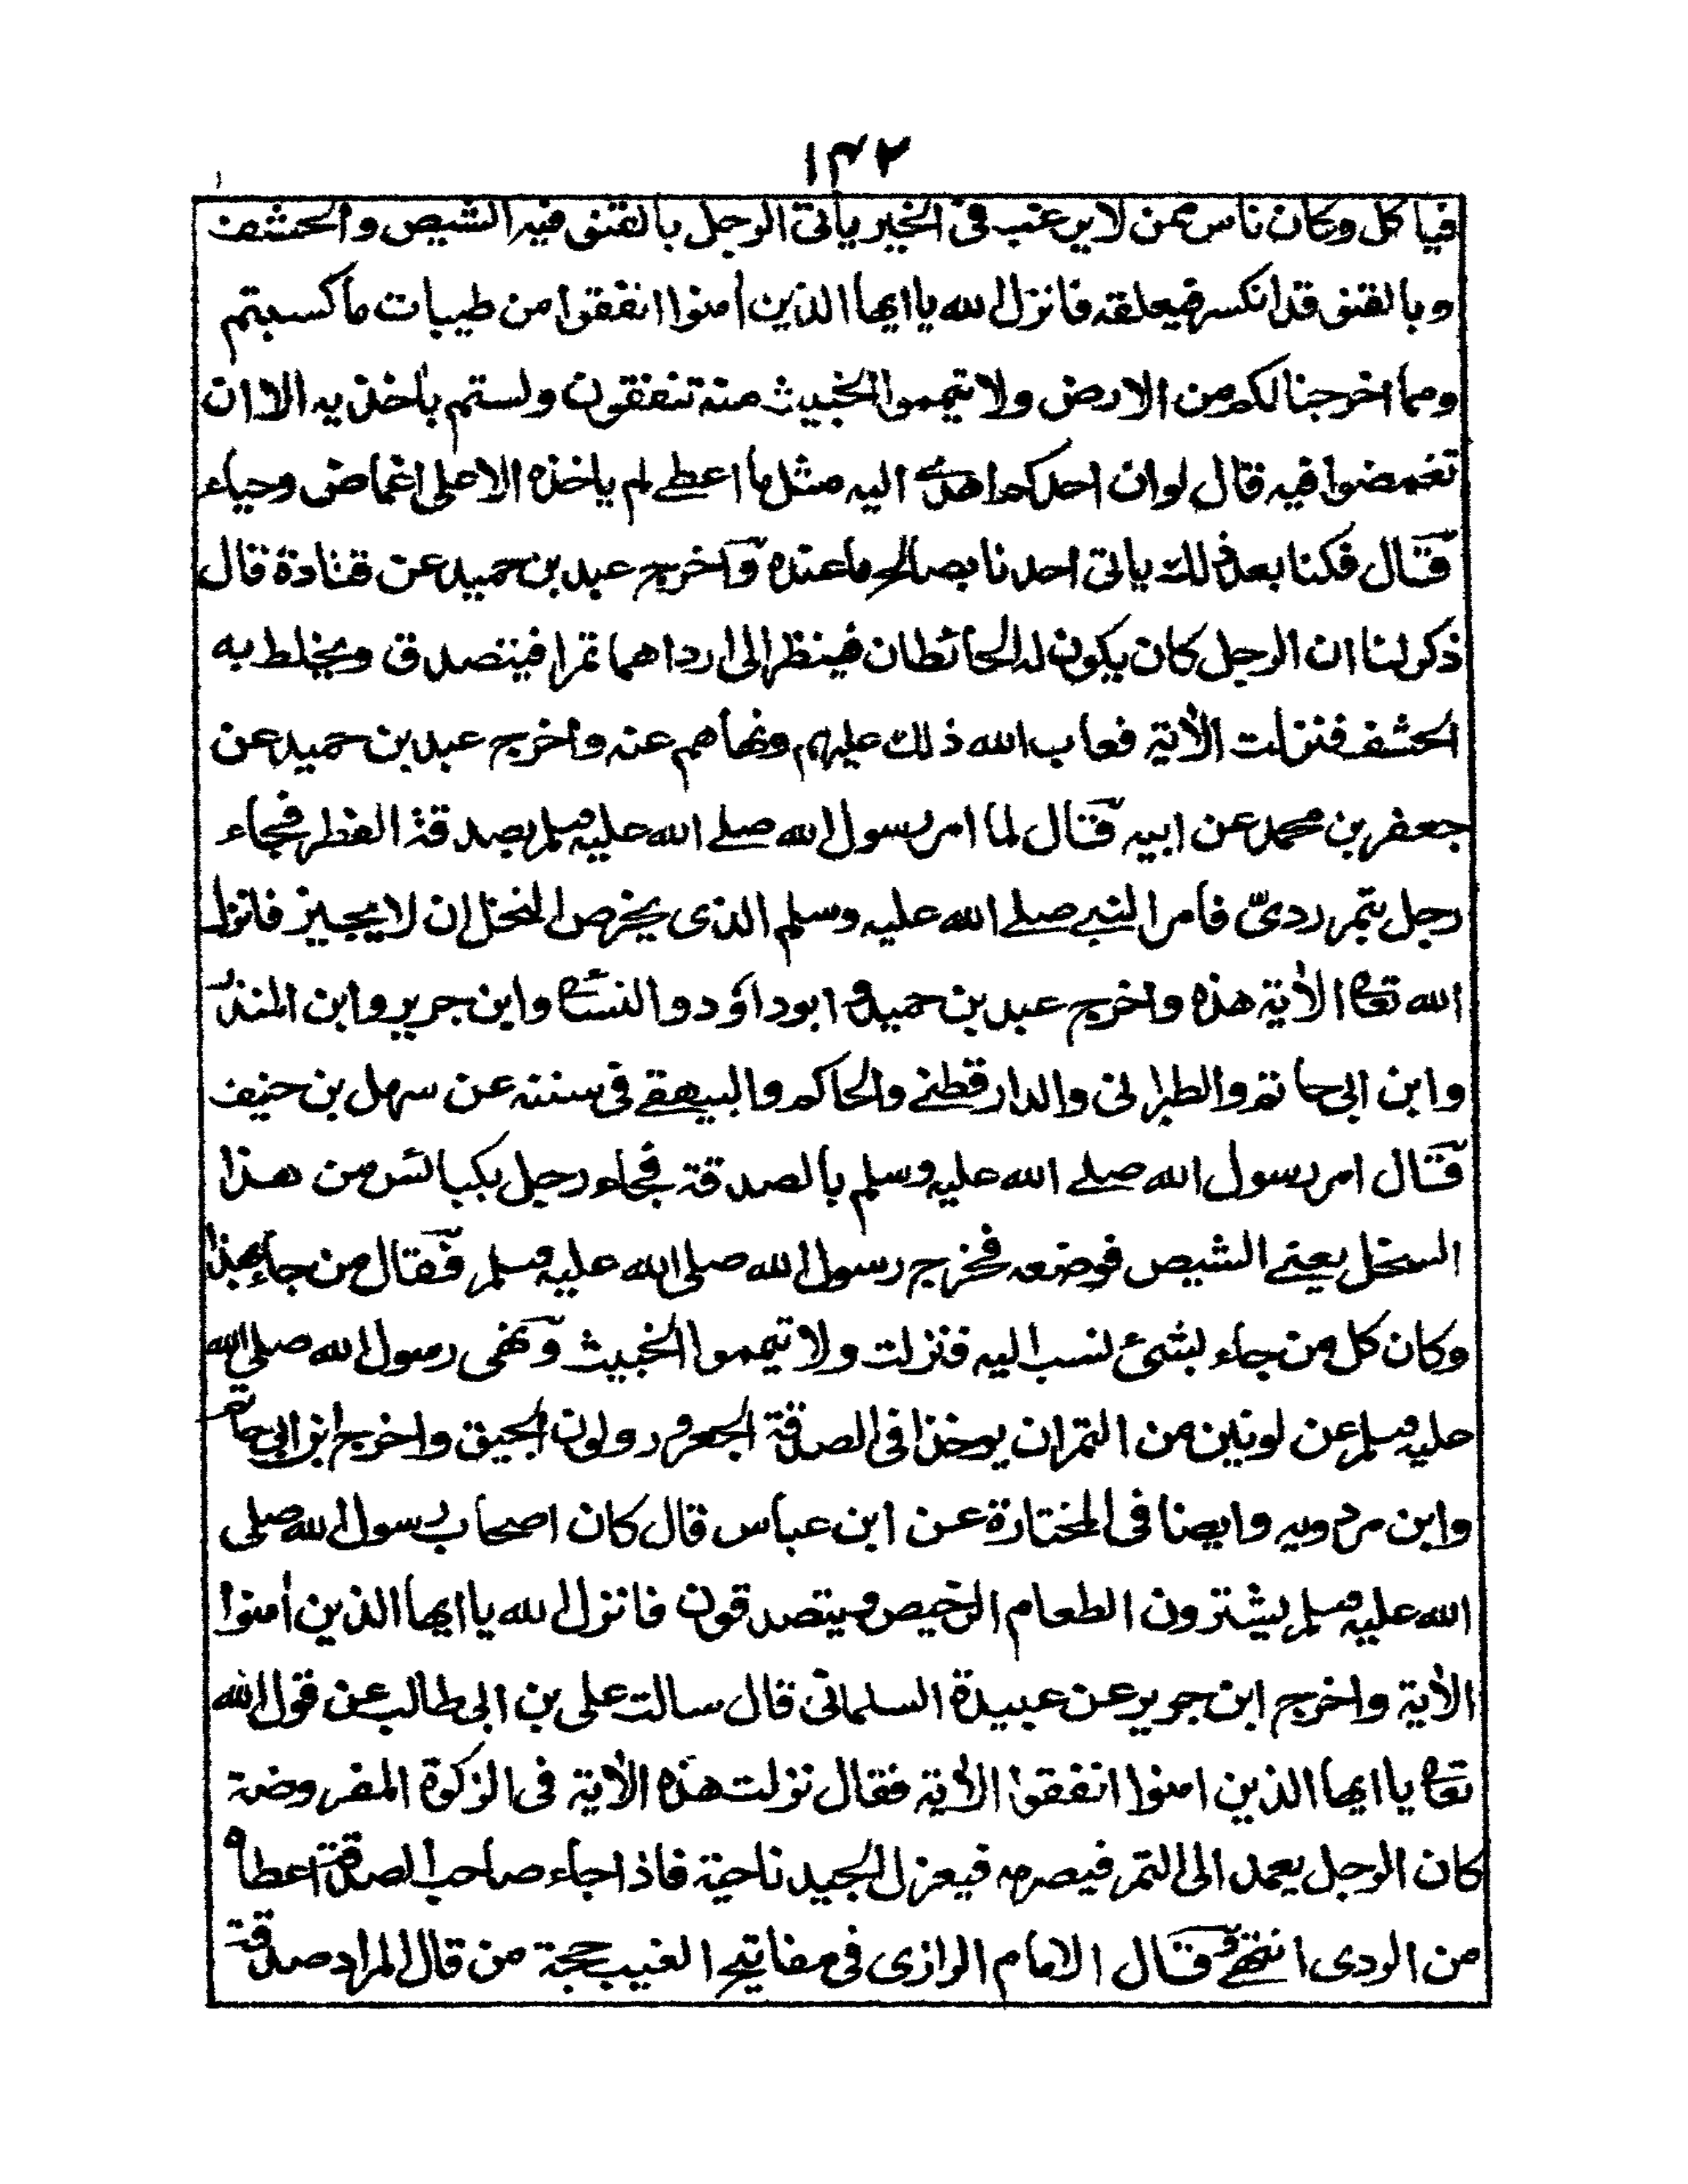 ١٣٢
فياكل وكان ناس ممن لا يرغب فى الخير ياتى الرجل بالقنو فيه الشيص والحشف
وبالقنو قد انكسر فيعلقه فانزل الله يا ايها الذين اٰمنوا انفقوا من طيبات ما كسبتم
ومما اخرجنا لكم من الارض ولا تيمموا الخبيث منه تنفقون ولستم باخذيه الا ان
تغمضوا فيه قال لو ان احدكم اهدى اليه مثل ما اعطے لم ياخذه الا على اغماض وحياء
قال فكنا بعد ذلك ياتى احدنا بصالح ما عنده واخرج عبد بن حميد عن قتادة قال
ذكر لنا ان الرجل كان يكون له الحائطان فينظر الى اردا هما تمرا فيتصدق ويخلط به
الحشف فنزلت الاٰية فعاب الله ذلك عليهم ونهاهم عنه واخرج عبد بن حميد عن
جعفر بن محمد عن ابيه قال لما امر رسول الله صلے الله عليه وسلم بصدقة الفطر فجاء
رجل بتمر ردىّ فامر النبے صلے الله عليه وسلم الذى يخرص النخل ان لا يجيز فانزل
الله تعالے الاٰية هذه واخرج عبد بن حميد و ابو داؤد والنسائے وابن جرير وابن المنذر
وابن ابى حاتم والطبرانى والدارقطنے والحاكم والبيهقے فى سننه عن سهل بن حنيف
قال امر رسول الله صلے الله عليه وسلم بالصدقة فجاء رجل بكبائس من هذا
السخل يعنے الشيص فوضعه فخرج رسول الله صلى الله عليه وسلم فقال من جاء بهذا
وكان كل من جاء بشئ نسب اليه فنزلت ولا تيمموا الخبيث ونهى رسول الله صلى الله
عليه وسلم عن لونين من التمر ان يوخذا فى الصدقة الجعرور ولون الحبيق واخرج ابن ابى حاتم
وابن مردويه وايضا فى المختارة عن ابن عباس قال كان اصحاب رسول الله صلى
الله عليه وسلم يشترون الطعام الرخيص ويتصدقون فانزل الله يا ايها الذين اٰمنوا
الاٰية واخرج ابن جرير عن عبيدة السلمانى قال سالت على بن ابى طالب عن قول الله
تعالے يا ايها الذين امنوا انفقوا الاٰية فقال نزلت هذه الاٰية فى الزكوة المفروضة
كان الرجل يعمد الى التمر فيصرمه فيعزل الجيد ناحية فاذا جاء صاحب الصدقة اعطاه
من الردى انتهے وقال الامام الرازى فى مفاتيح الغيب حجة من قال المراد صدقة